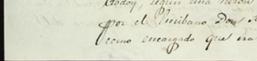 Godoy, según una
por el Escribano Don
como encargado que era